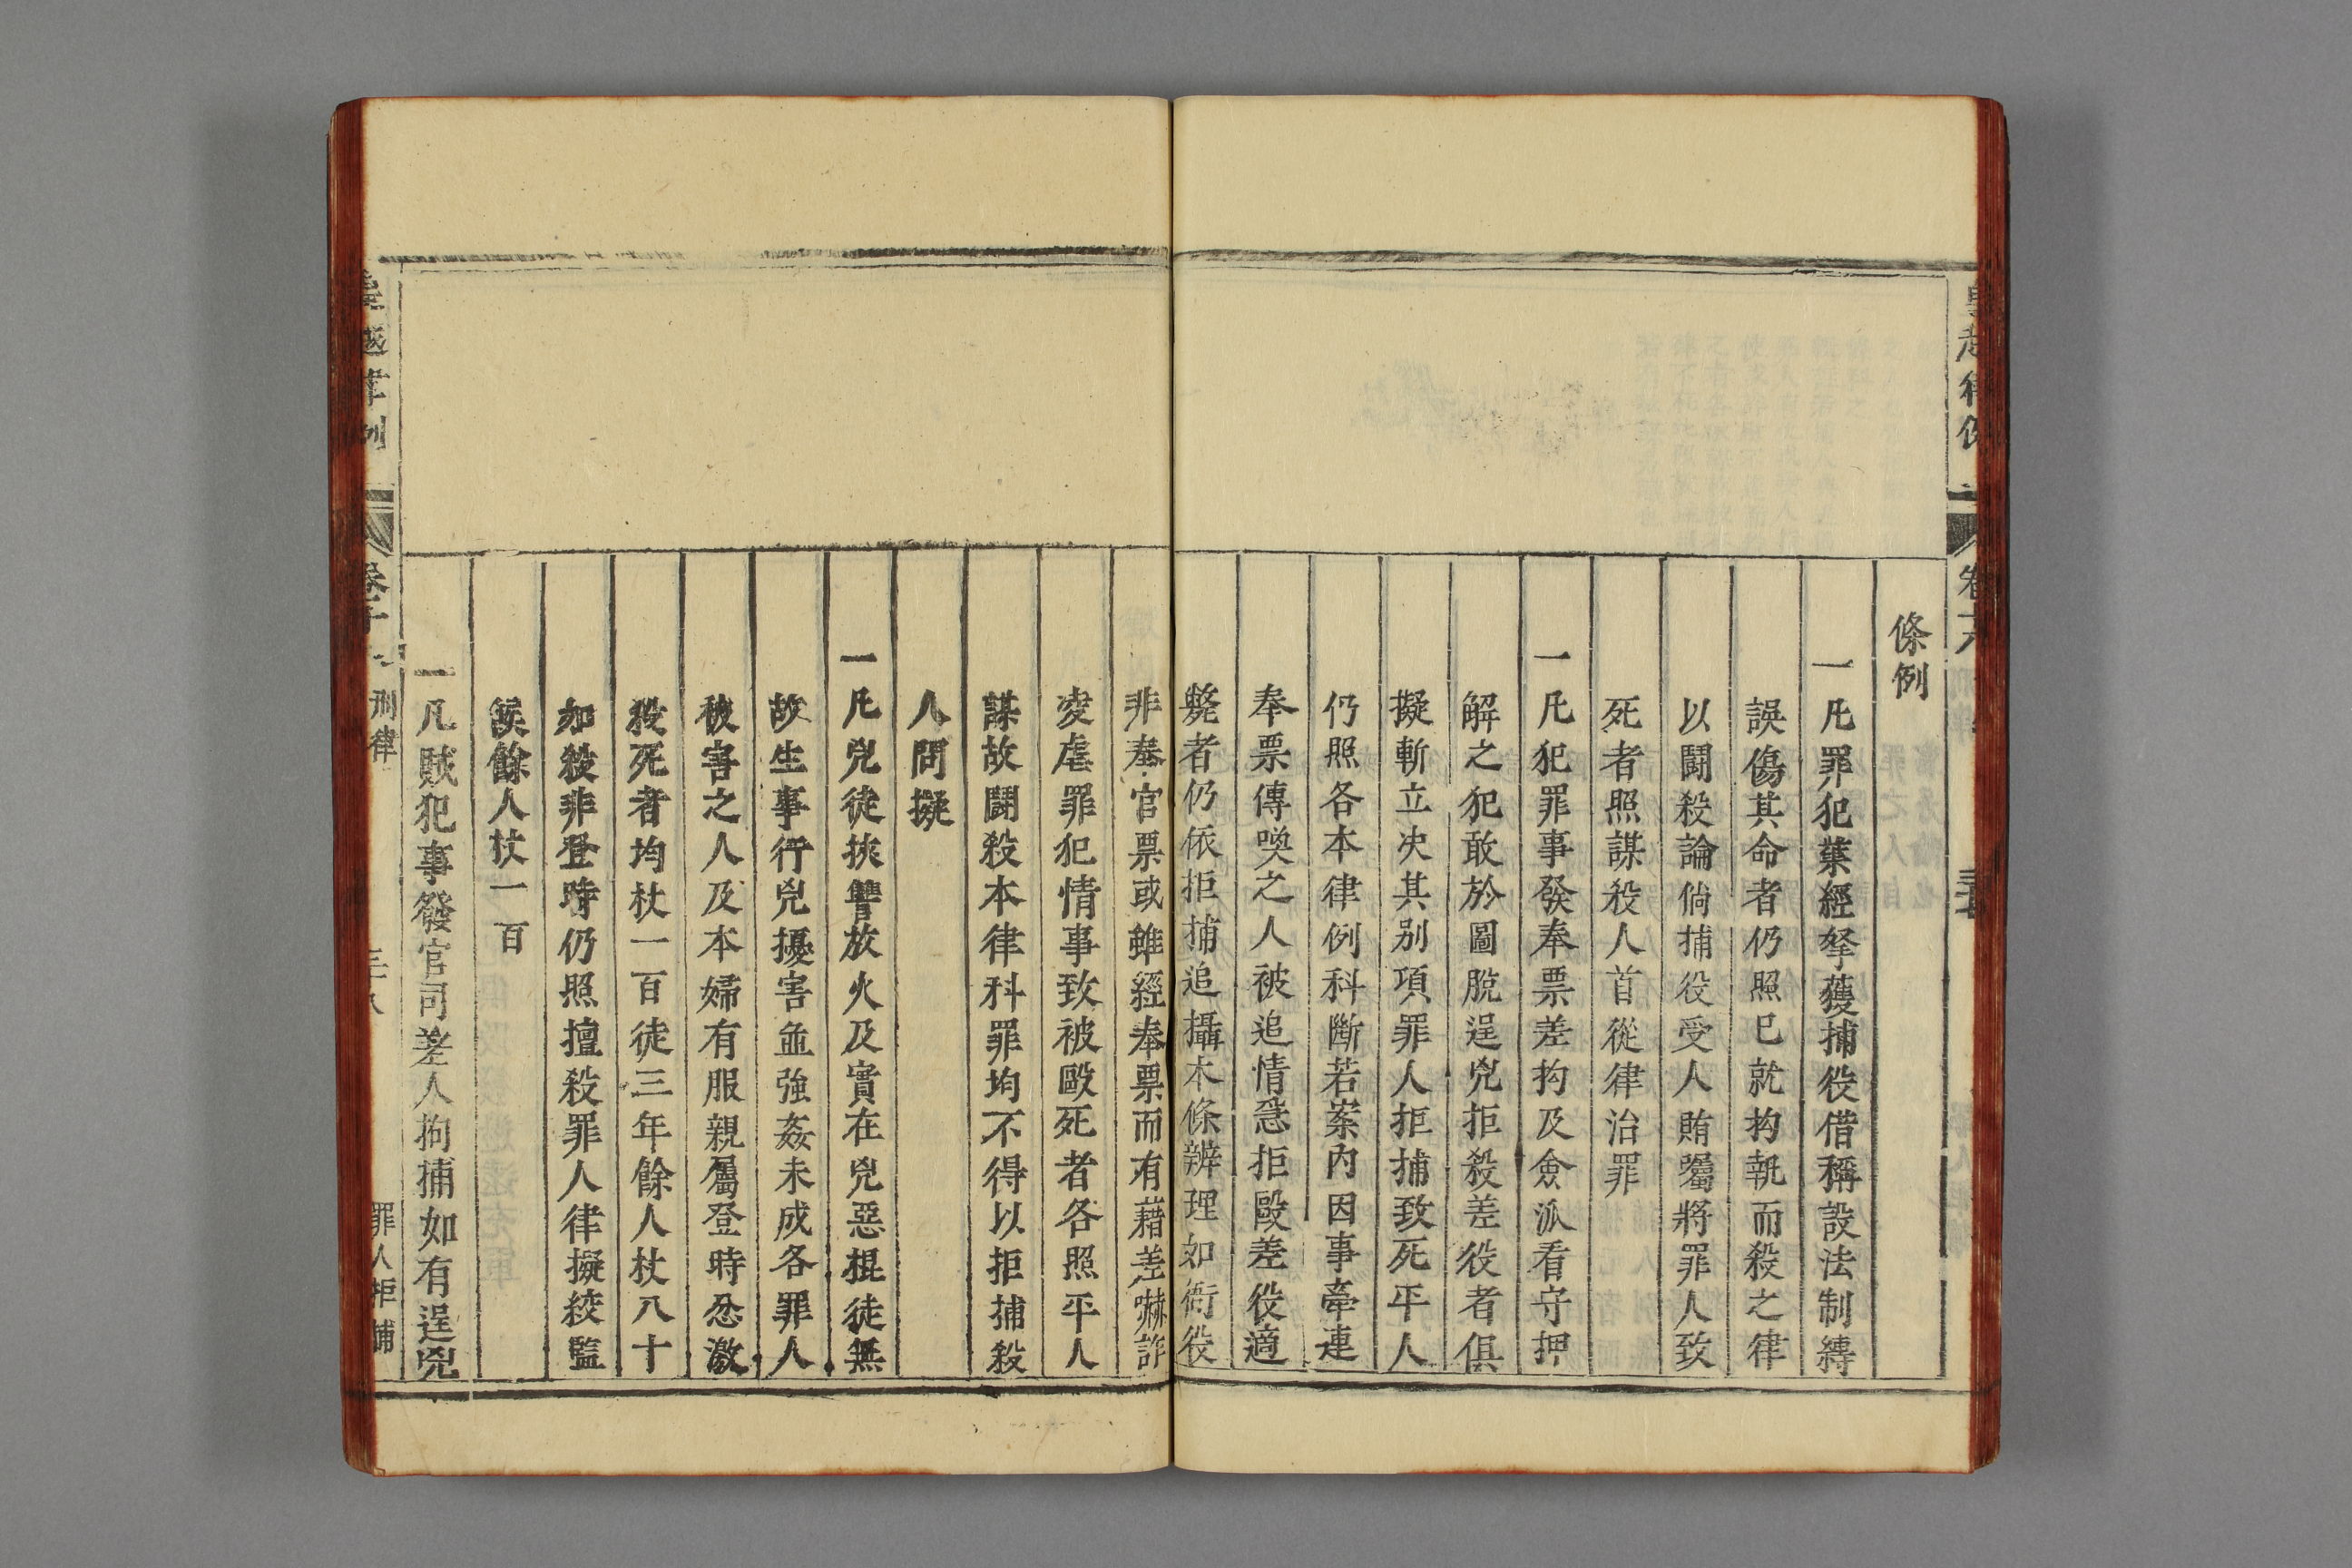 條例
一凡罪犯業經拏獲捕役借稱設法制縛
誤傷其命者仍照已就拘執而殺之律
以鬬殺論倘捕役受人賄囑將罪人致
死者照謀殺人首從律治罪
一凡犯罪事發奉票差拘及僉派看守押
解之犯敢於圖脫逞兇拒殺差役者俱
擬斬立决其别項罪人拒捕致死平人
仍照各本律例科斷若案內因事牽連
奉票傳喚之人被追情急拒毆差役適
斃者仍依拒捕追攝本條辨理如衙役
非奉官票或雖經奉票而有藉差嚇詐
凌虐罪犯情事致被毆死者各照平人
謀故鬬殺本律科罪均不得以拒捕殺
人問擬
一凡兇徒挾讐放火及實在兇惡棍徒無
故生事行兇擾害並強姦未成各罪人
被害之人及本婦有服親屬登時忿激
殺死者均杖一百徒三年餘人杖八十
如殺非登時仍照擅殺罪人律擬絞監
候餘人杖一百
一凡賊犯事發官司差人拘捕如有逞兇
刑律
罪人拒捕